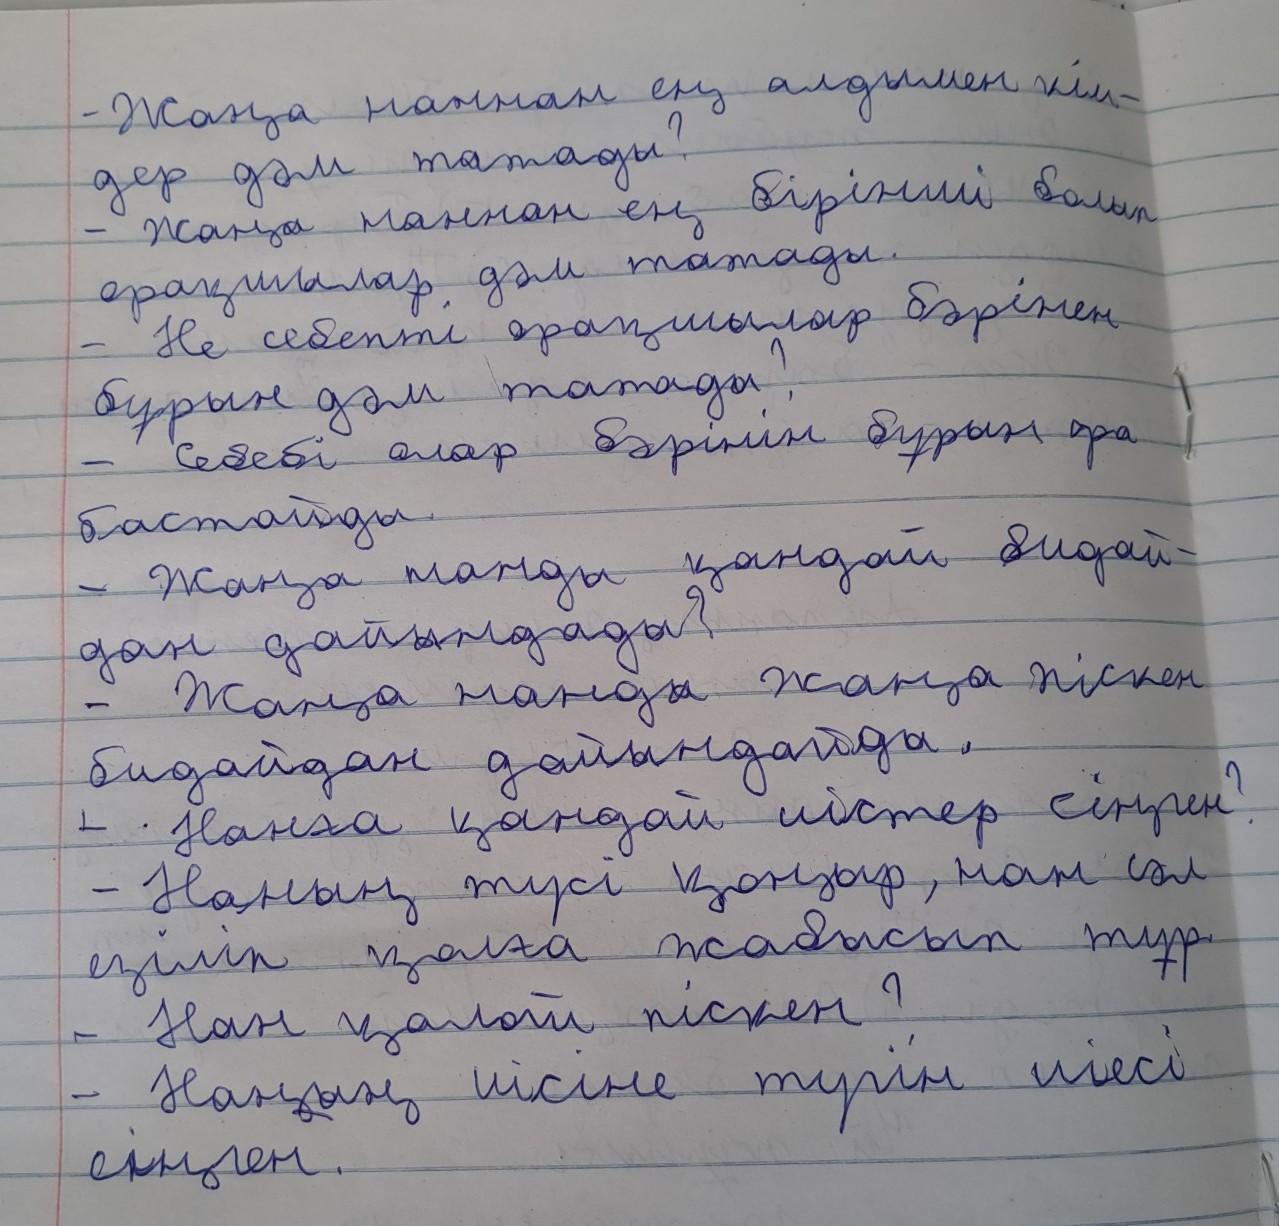 - Жаңа наннан ең алдымен кім-
дер дәм татады?
- Жаңа наннан ең бірінші болып
орақшылар дәм татады.
- Не себепті орақшылар бәрінен
бұрын дәм татады?
- Себебі олар бәрінін бұрын ора
бастайды.
- Жаңа нанды қандай бидай-
дан дайындады?
- Жаңа нанды жаңа піскен
бидайдан дайындайды.
- Нанға қандай иістер сіңген?
- Наның түсі қоңыр, нан сәл
езіліп қалға жабысып тұр.
- Нан қалай піскен?
- Наңның иісіне түтін иіесі
сіңген.